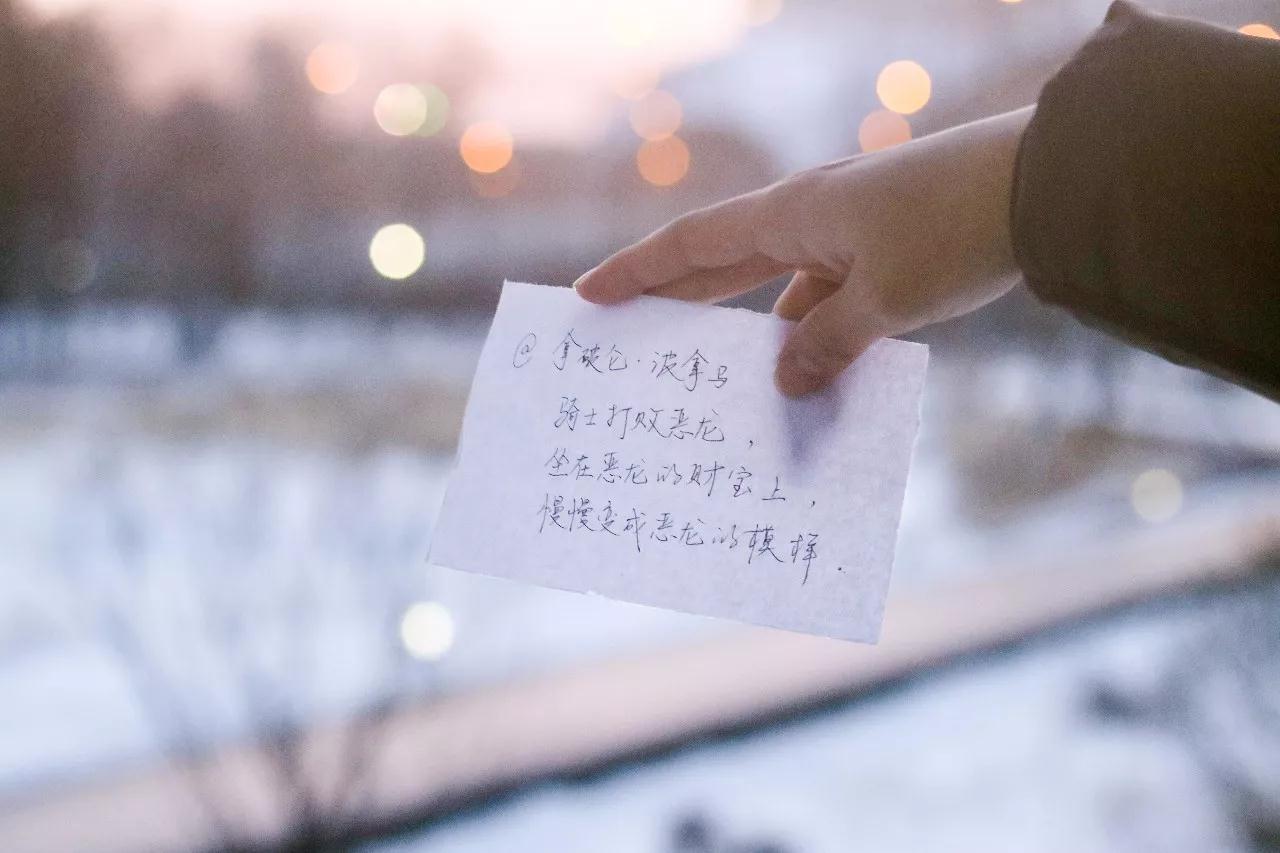 @拿破仑·波拿马
骑士打败恶龙，
坐在恶龙的财宝上，
慢慢变成恶龙的模样.